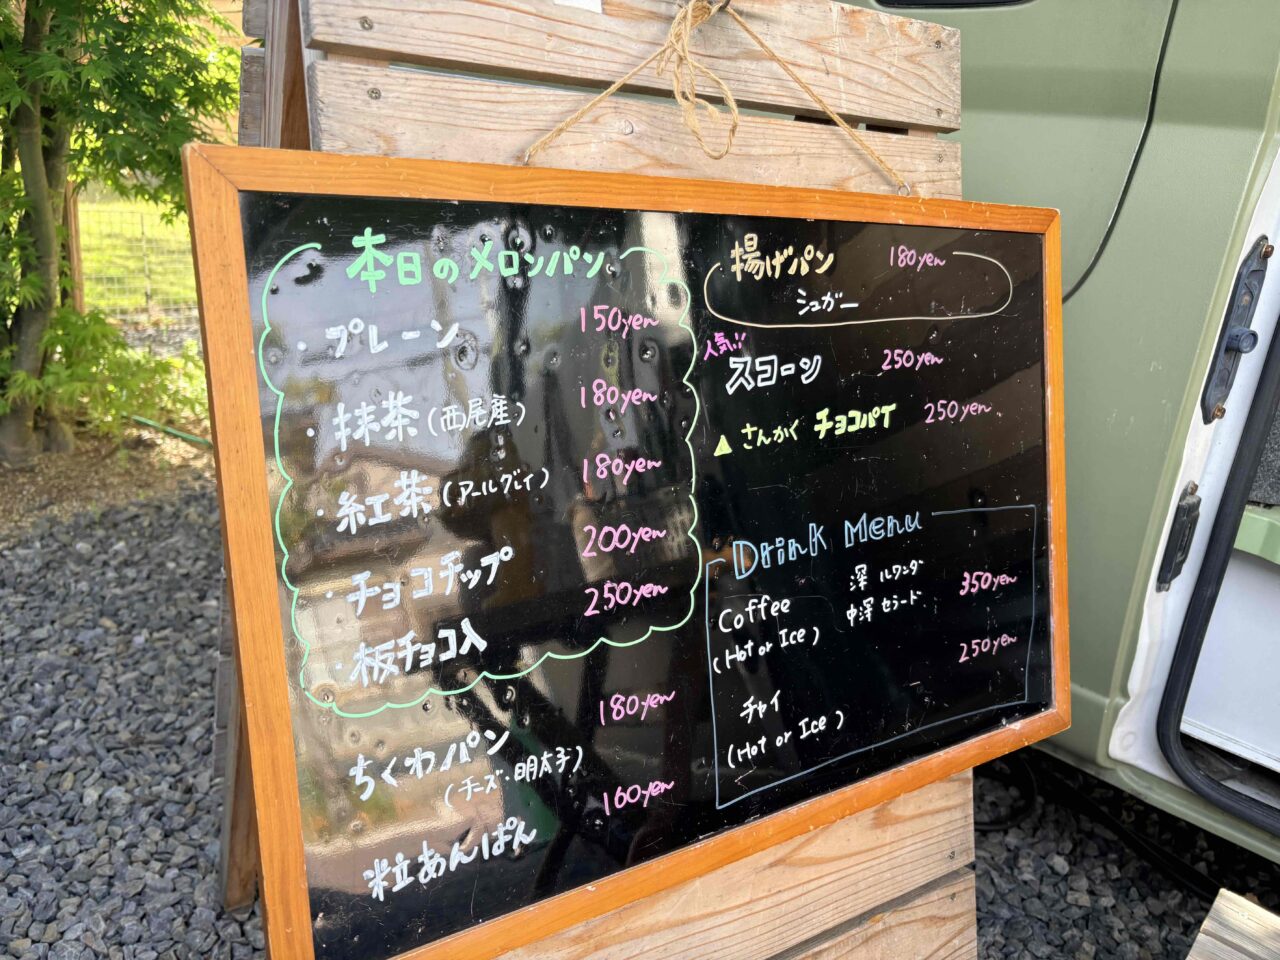 本日のメロンパン
・プレーン 150yen
・抹茶(西尾産) 180yen
・紅茶(アールグレイ) 180yen
・チョコチップ 200yen
・板チョコ入 250yen
ちくわパン 180yen
(チーズ・明太子)
粒あんぱん 160yen
揚げパン 180yen
シュガー
人気!!
スコーン 250yen
さんかく チョコパイ 250yen
Drink Menu
Coffee 深 ルワンダ 350yen
(Hot or Ice) 中深 セラード
チャイ 250yen
(Hot or Ice)